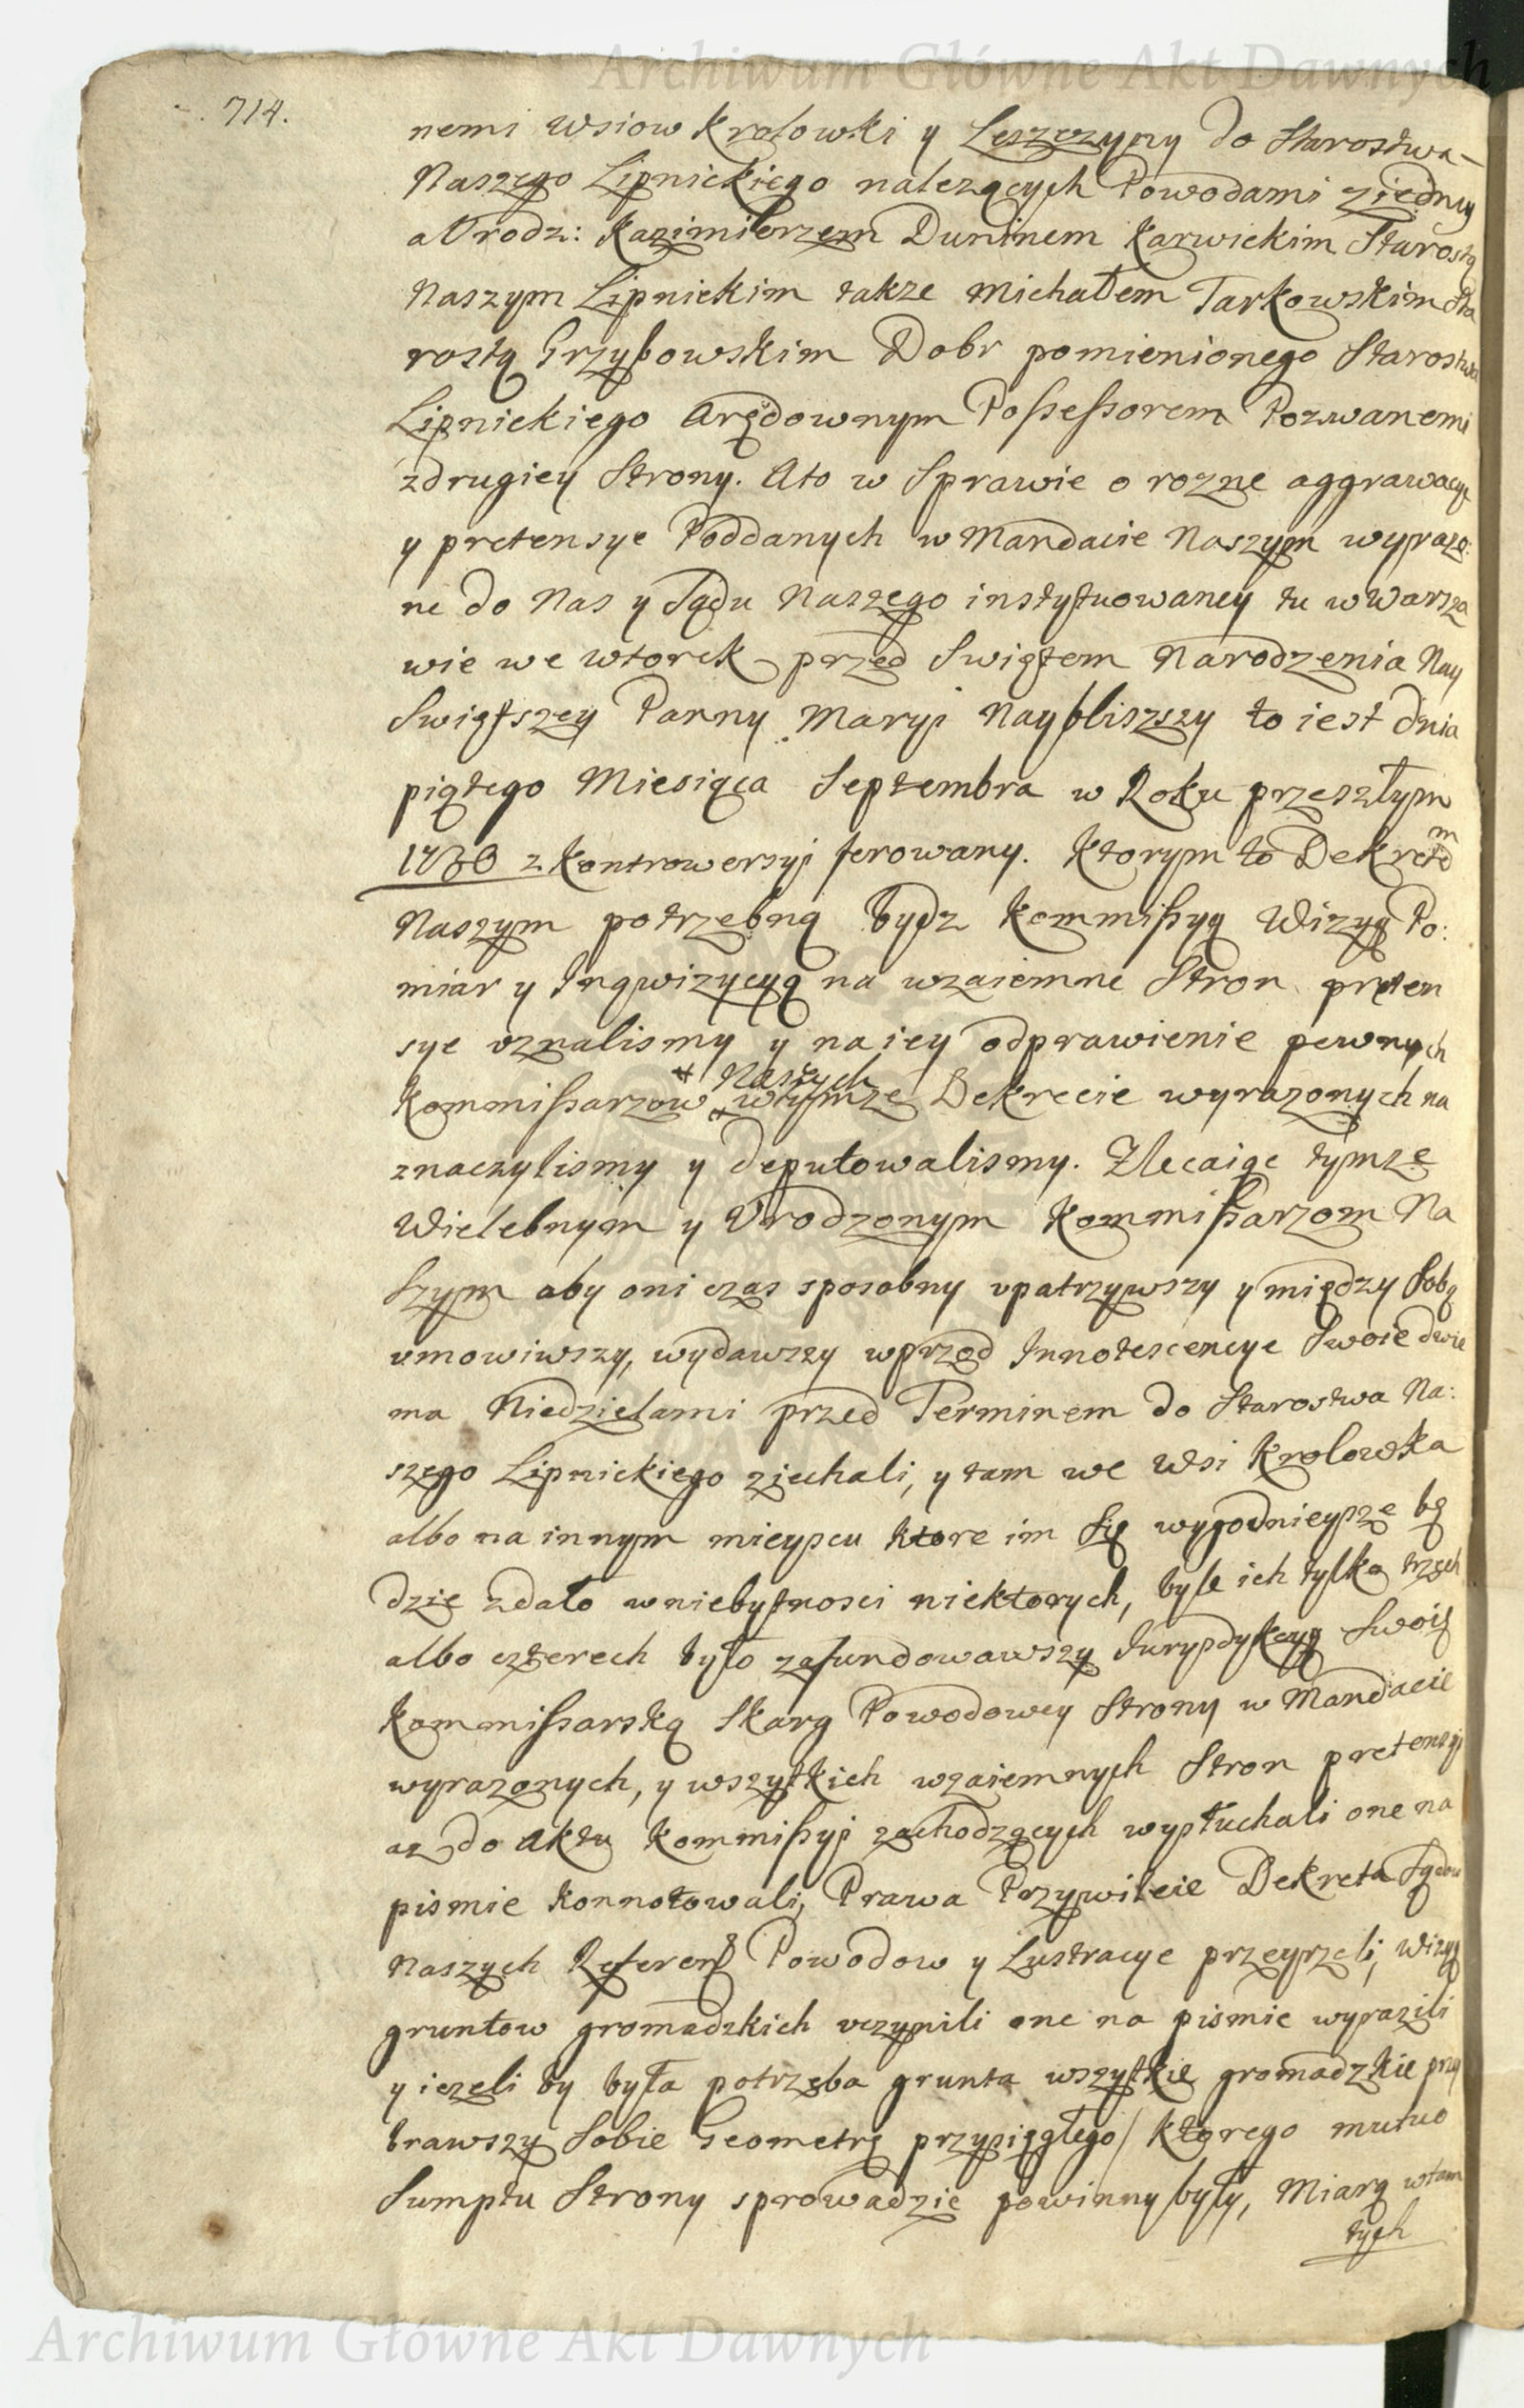 Archiwum Główne Akt Dawnych
714.
nemi wsiow Krolowki y Leszczyny do Starostwa
Naszego Lipnickiego nalezących Powodami ziedney
a Urodz: Kazimierzem Duninem Karwickim Starostą
Naszym Lipnickim takze Michałem Tarkowskim Sta
rostą Grzybowskim Dobr pomienionego Starostwa
Lipnickiego Arędownym Possessorem Pozwanemi
zdrugiey Strony. Ato w Sprawie o rozne aggrawacye
y pretensye Poddanych w Mandacie Naszym wyrazo:
ne do Nas y Sądu Naszego instytuowaney tu w Warsza
wie we wtorek przed Swiętem Narodzenia Nay
Swiętszey Panny Maryi Naybliszszy to iest dnia
piątego Miesiąca Septembra w Roku przeszłym
1730 z kontrowersyi ferowany. Ktorym to Dekretem
Naszym potrzebną bydz Kommissyą Wizyą Po:
miar y Inqwizycyą na wzaiemne Stron preten
sye uznalismy y na iey odprawienie pewnych
Kommissarzow Naszych wtymze Dekrecie wyrazonych na
znaczylismy y deputowalismy. Zlecaiąc tymze
Wielebnym y Urodzonym Kommissarzom Na
szym aby oni czas sposobny upatrzywszy y między Sobą
umowiwszy, wydawszy wprzod Innotescencye Swoie dwie
ma Niedzielami przed Terminem do Starostwa Na:
szego Lipnickiego ziechali, y tam we Wsi Krolowka
albo na innym mieyscu ktore im się wygodnieysze bę
dzie zdało w niebytnosci niektorych, byle ich tylko trzech
albo czterech było zafundowawszy Jurysdykcyą Swoię
Kommissarską Skarg Powodowey Strony w Mandacie
wyrazonych, y wszytkich wzaiemnych Stron pretensyi
az do Aktu Kommissyi zachodzących wysłuchali one na
pismie konnotowali, Prawa Przywileie Dekreta Sądow
Naszych Referend Powodow y Lustracye przeyrzeli, wizyą
gruntow gromadzkich uczynili one na pismie wyrazili
y iezeli by była potrzeba grunta wszytkie gromadzkie przy
brawszy Sobie Geometrę przysięgłego / ktorego mutuo
Sumptu Strony sprowadzic powinny były, Miarą wtam
tych
Archiwum Główne Akt Dawnych